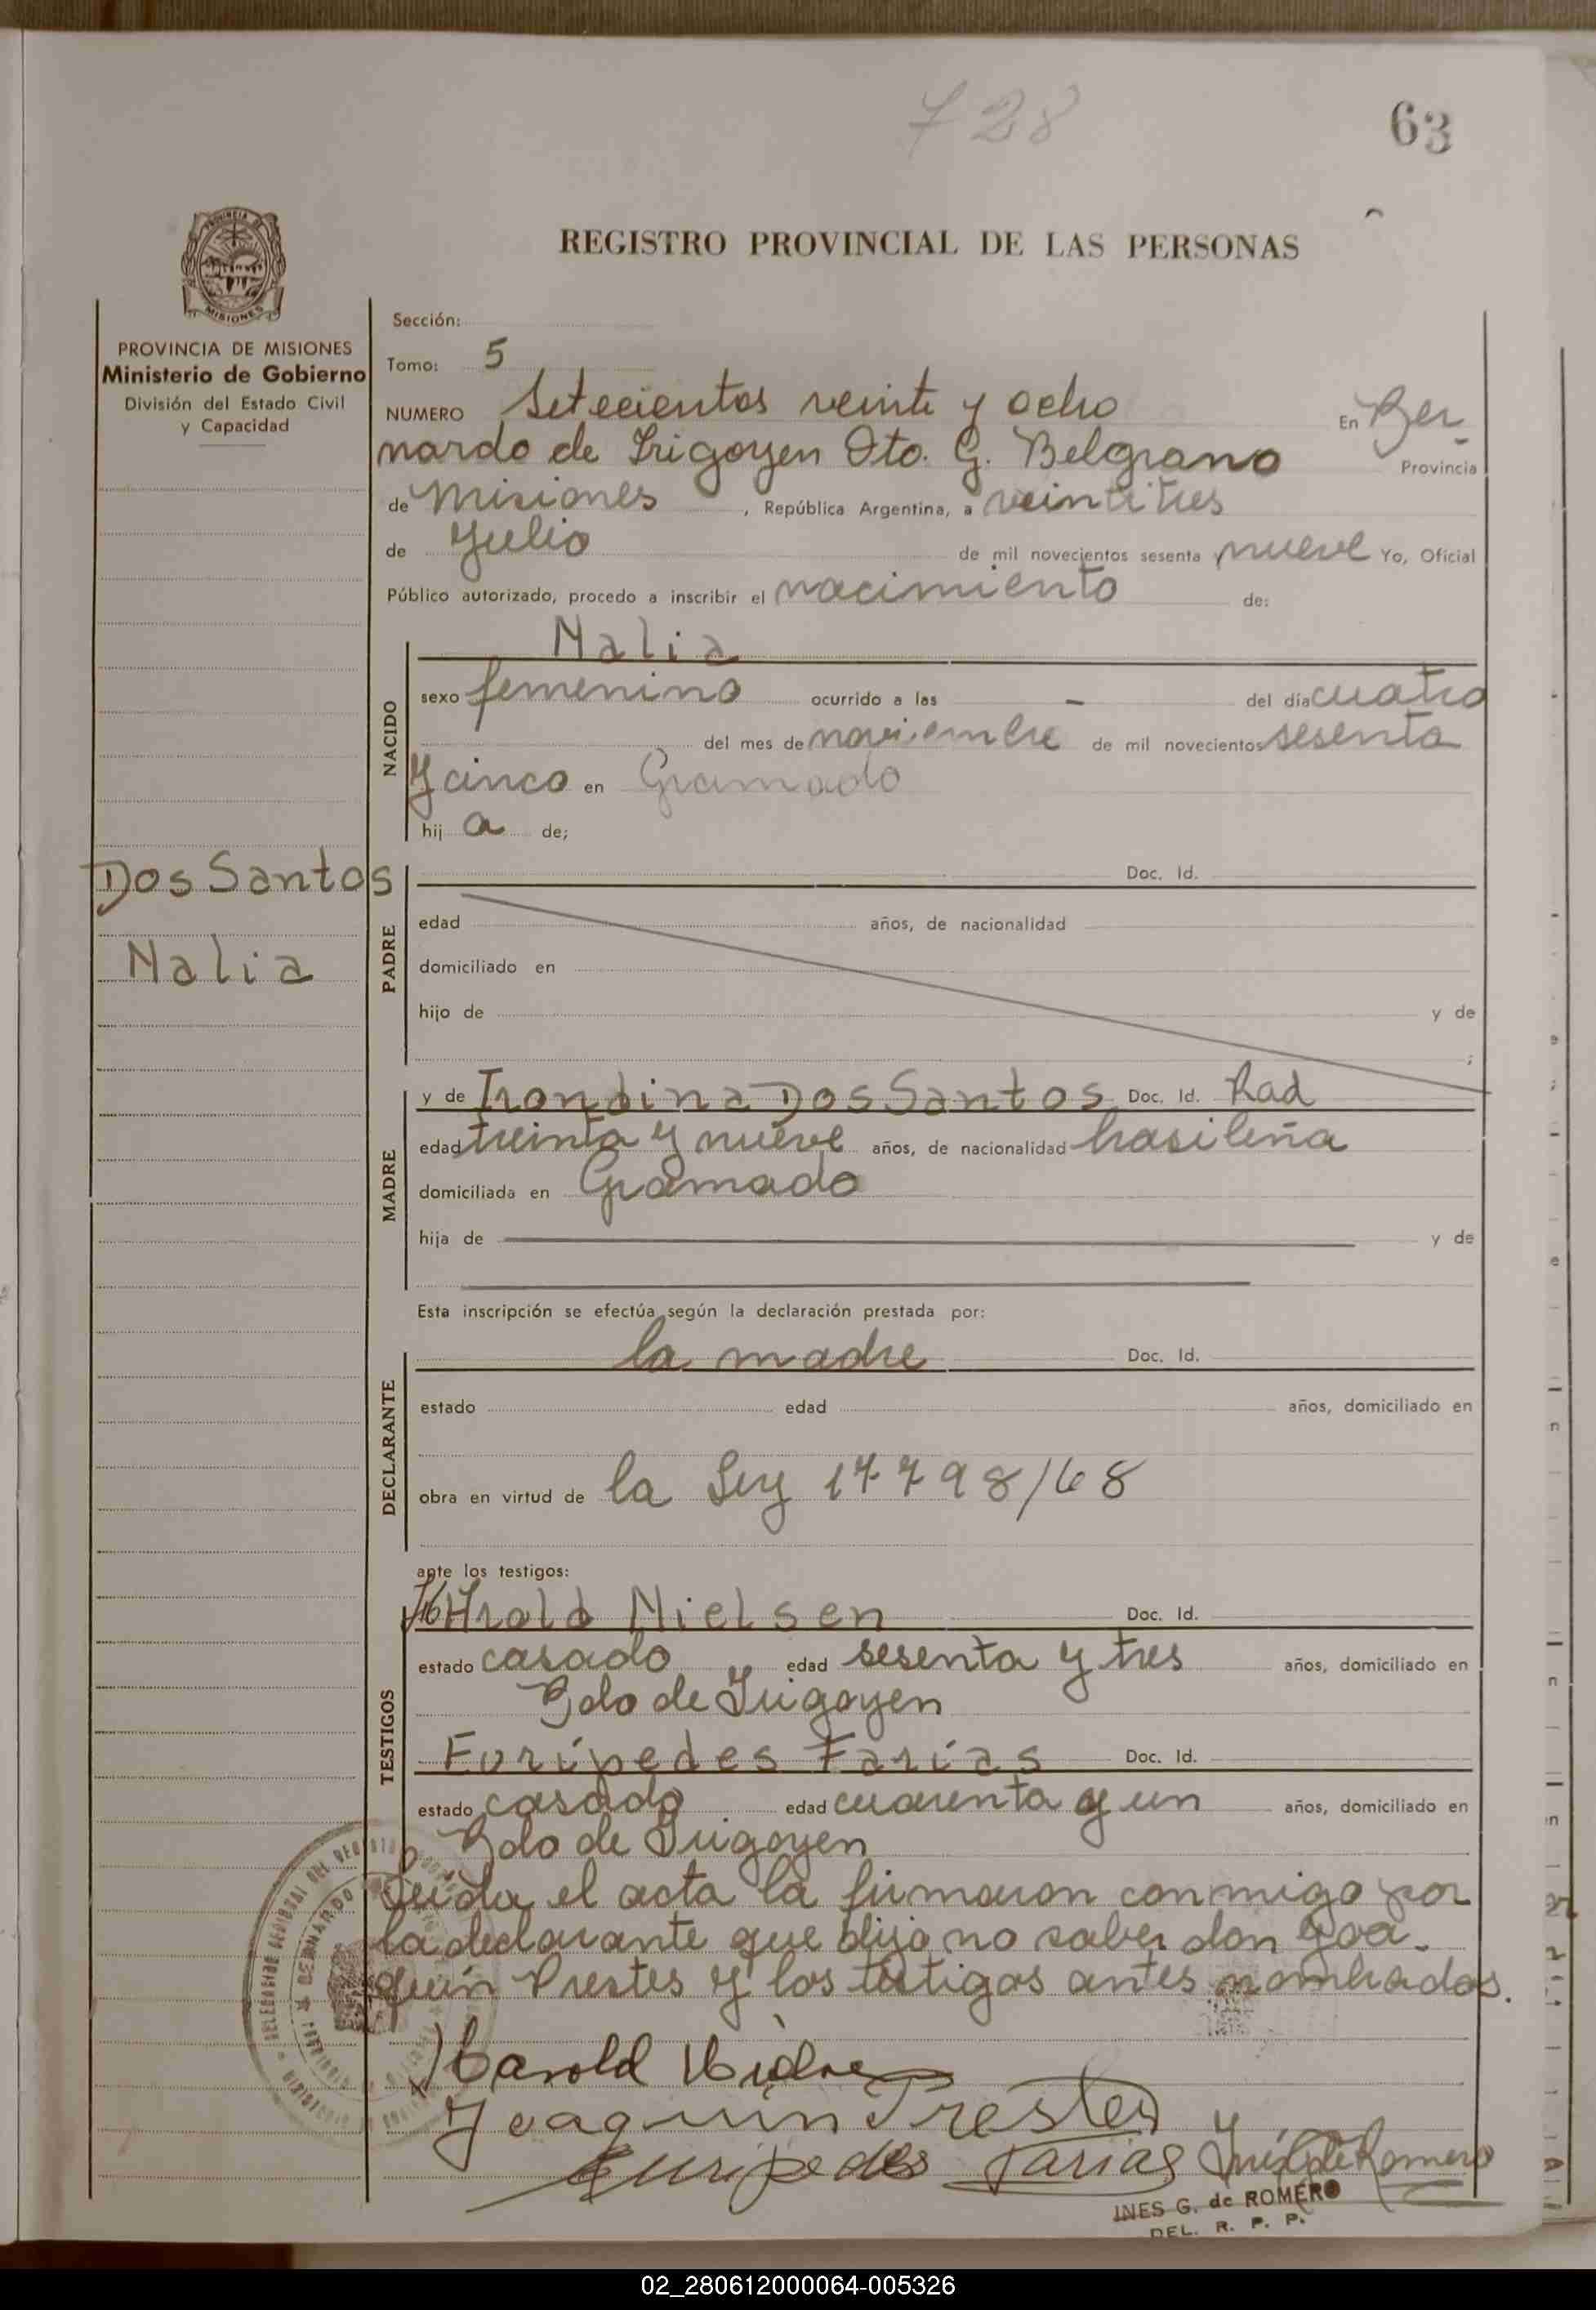 728
63
REGISTRO PROVINCIAL DE LAS PERSONAS
PROVINCIA DE
MISIONES
PROVINCIA DE MISIONES
Ministerio de Gobierno
División del Estado Civil
y Capacidad
Dos Santos
Nalia
Sección:
Tomo: 5
NUMERO Setecientos veinte y ocho En Ber-
nardo de Irigoyen Dto. G. Belgrano Provincia
de Misiones, República Argentina, a veintitres
de Julio de mil novecientos sesenta y nueve Yo, Oficial
Público autorizado, procedo a inscribir el nacimiento de:
NACIDO
Nalia
sexo femenino ocurrido a las - del día cuatro
del mes de noviembre de mil novecientos sesenta
y cinco en Gramado
hij a de;
PADRE
Doc. Id.
edad años, de nacionalidad
domiciliado en
hijo de y de
;
MADRE
y de Irondina Dos Santos Doc. Id. Rad
edad treinta y nueve años, de nacionalidad brasileña
domiciliada en Gramado
hija de y de
Esta inscripción se efectúa según la declaración prestada por:
DECLARANTE
la madre Doc. Id.
estado edad años, domiciliado en
obra en virtud de la Ley 17798/68
ante los testigos:
TESTIGOS
Harold Nielsen Doc. Id.
estado casado edad sesenta y tres años, domiciliado en
Bdo de Irigoyen
Eurípedes Farías Doc. Id.
estado casado edad cuarenta y un años, domiciliado en
Bdo de Irigoyen
Leída el acta la firmaron conmigo por
la declarante que dijo no saber don Joa-
quín Prestes y los testigos antes nombrados.
Harold
Joaquin Prestes
Euripedes Farias Inés G de Romero
INES G. de ROMERO
DEL. R. P. P.
02_280612000064-005326